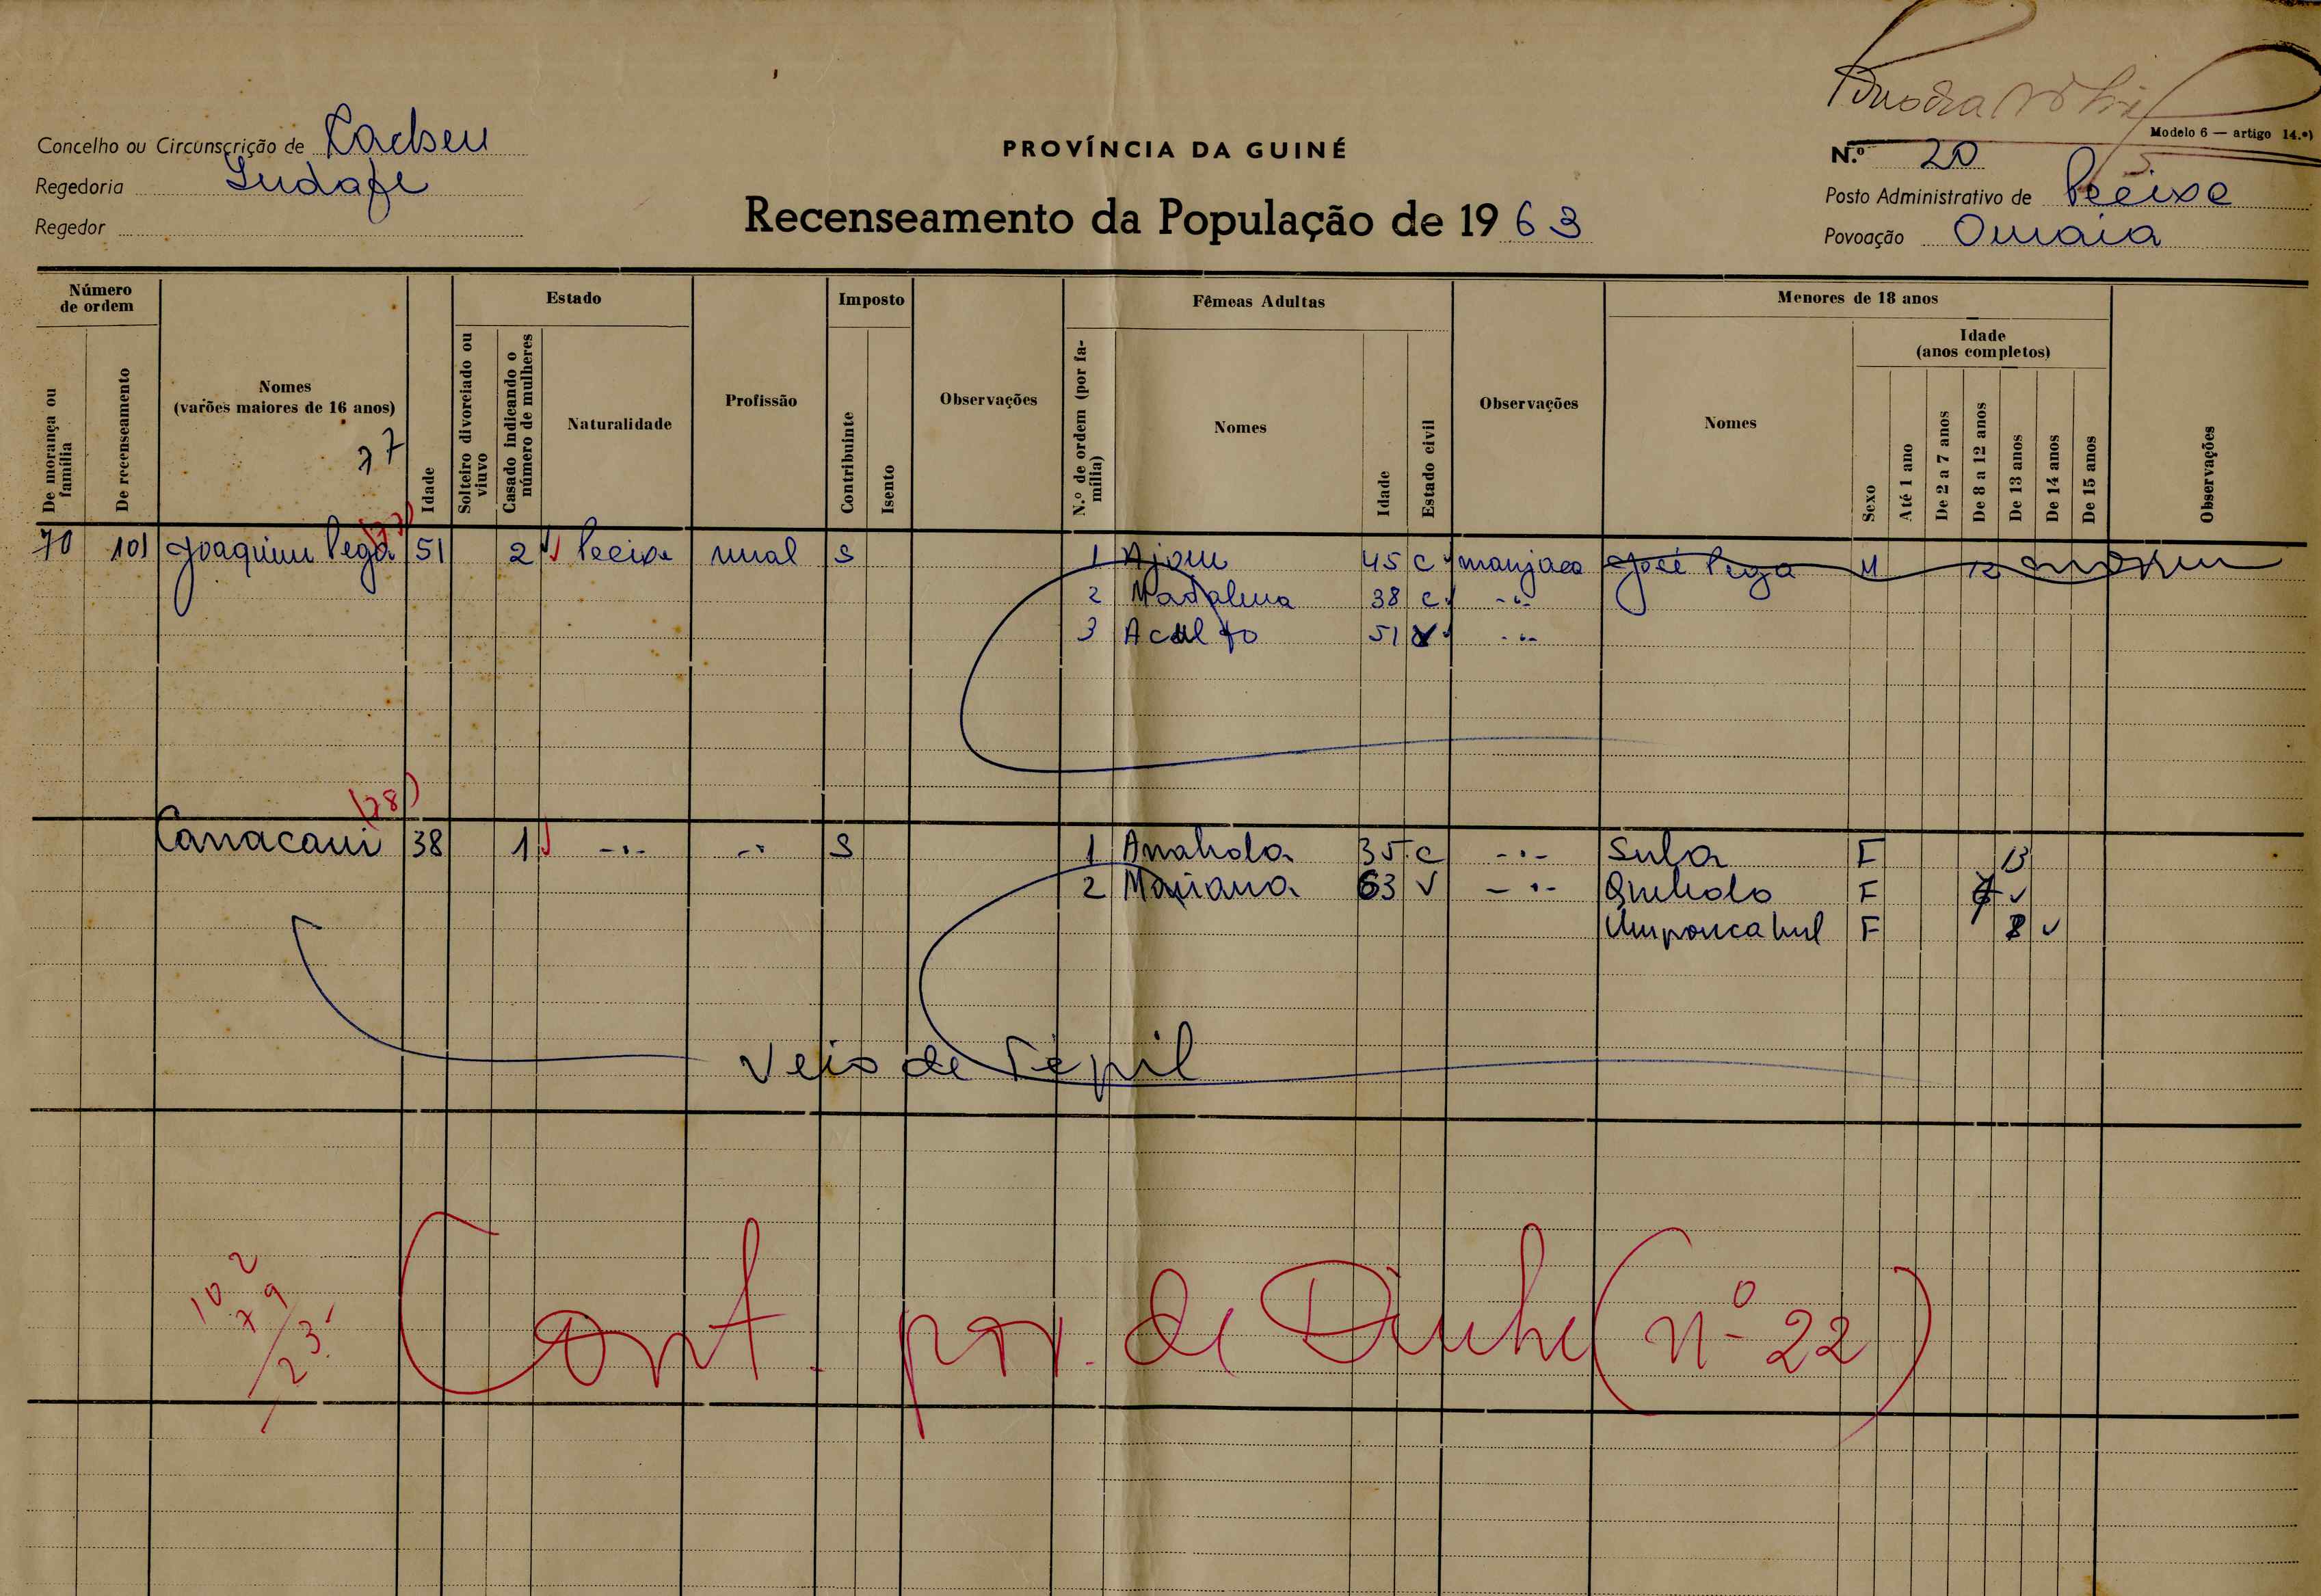 Modelo 6 — artigo 14.º)
Concelho ou Circunscrição de Cacheu
PROVÍNCIA DA GUINÉ
N.º 20
Regedoria
Posto Administrativo de Pecixe
Regedor
Recenseamento da População de 1963
Povoação Omaia
Número de ordem
Estado
Imposto
Fêmeas Adultas
Menores de 18 anos
De morança ou família
De recenseamento
Nomes (varões maiores de 16 anos)
77
Idade
Solteiro divorciado ou viuvo
Casado indicando o número de mulheres
Naturalidade
Profissão
Contribuinte
Isento
Observações
N.º de ordem (por família)
Nomes
Idade
Estado civil
Observações
Nomes
Sexo
Idade (anos completos)
Até 1 ano
De 2 a 7 anos
De 8 a 12 anos
De 13 anos
De 14 anos
De 15 anos
Observações
(77)
70 101 Joaquim Pega 51 2 Pecixe rural S 1 Ajom 45 C manjaco José Pega M 12
2 Madalena 38 C -"-
3 51 -"-
(78)
38 1 -"- -"- S 1 35 C -"- Sula F 13
2 Mariana 63 V -"- F
F 8
Veio de
Cont. pov. de (nº 22)
102
79
23